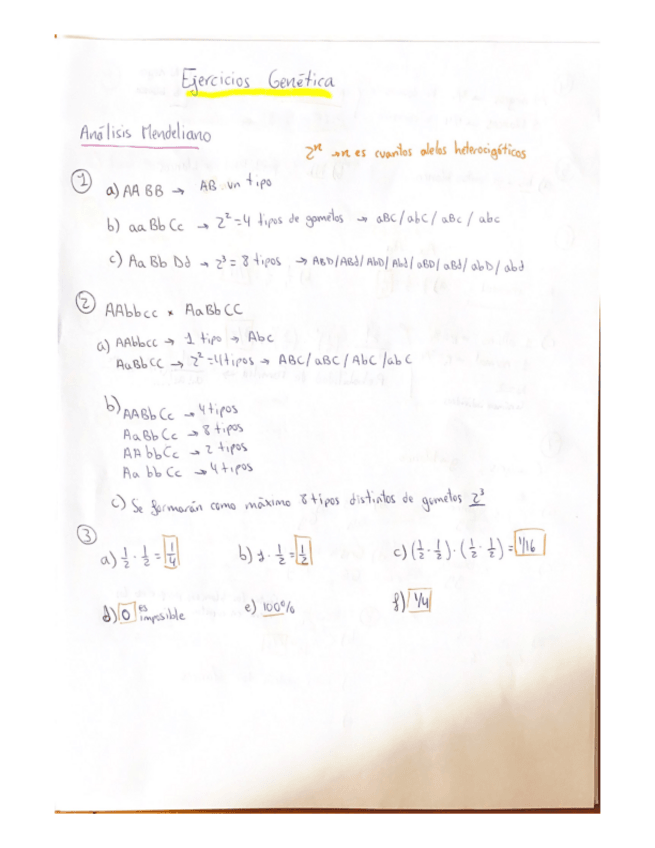 Ejercicios Genética
Análisis Mendeliano
2ⁿ → n es cuantos alelos heterocigóticos
① a) AA BB → AB un tipo
b) aa Bb Cc → 2² = 4 tipos de gametos → aBC / abC / aBc / abc
c) Aa Bb Dd → 2³ = 8 tipos → ABD/ABd/AbD/Abd/aBD/aBd/abD/abd
② AAbbcc × AaBbCC
a) AAbbcc → 1 tipo → Abc
AaBbCC → 2² = 4 tipos → ABC/ aBC/ AbC /abC
b) AABbCc → 4 tipos
AaBbCc → 8 tipos
AAbbCc → 2 tipos
AabbCc → 4 tipos
c) Se formarán como máximo 8 tipos distintos de gametos 2³
③
a) 1/2 · 1/2 = 1/4 b) 1 · 1/2 = 1/2 c) (1/2 · 1/2) · (1/2 · 1/2) = 1/16
d) 0 es imposible e) 100% f) 1/4